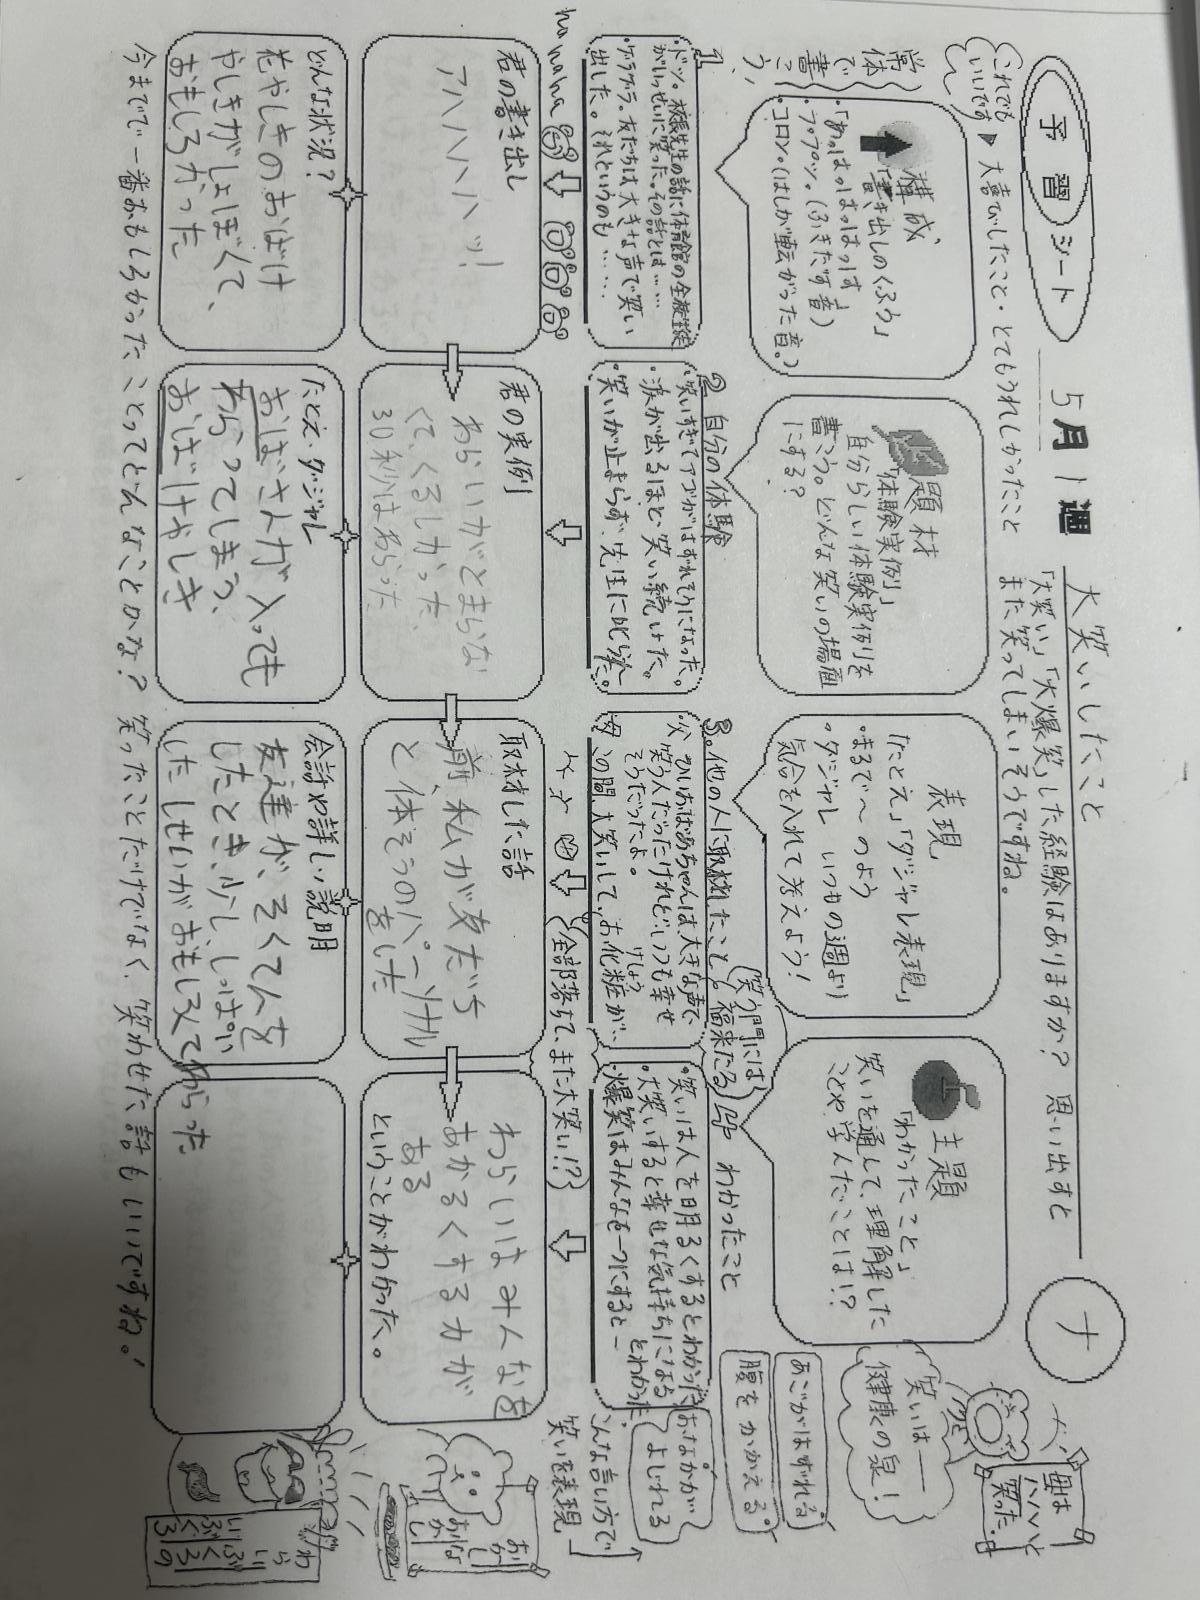 予習シート
5月1週
大笑いしたこと
ナ
これでも
いいです
▶大喜びしたこと・とてもうれしかったこと
「大笑い」「大爆笑」した経験はありますか？ 思い出すと
また笑ってしまいそうですね。
母は
ハハハと
笑った。
常
体
で
書
こ
う
構成
「書き出しのくふう」
・「あっはっはっはっは」
・プププッ。(ふきだす音)
・コロン。(はしが転がった音。)
題材
「体験実例」
自分らしい体験実例を
書こう。どんな笑いの場面
にする？
表現
「たとえ」「ダジャレ表現」
・まるで〜のよう
・ダジャレ いつもの週より
気合を入れて考えよう！
主題
「わかったこと」
笑いを通して、理解した
ことや、学んだことは!?
笑いは―
健康の泉！
あごがはずれる
腹をかかえる。
おなかが
よじれる
こんな言い方で
笑いを表現
1
・ドッ。校長先生の話に体育館の全校生徒
がいっせいに笑った。その話とは……
・ゲラゲラ。友だちは大きな声で笑い
出した。それというのも……
2 自分の体験
・笑いすぎてアゴがはずれそうになった。
・涙が出るほど、笑い続けた。
・笑いが止まらず、先生に叱られた。
3。他の人に取材したこと。
笑う門には
福来たる
父 ひいおばあちゃんは大きな声で
笑う人だったけれど、いつも幸せ
そうだったよ。
母 この間、大笑いして、お化粧が、
けしょう
(全部落ちて、また大笑い!?)
わかったこと
・笑いは人を明るくするとわかった
・大笑いすると幸せな気持ちになる
・爆笑はみんなを一つにすると―
とわかった
hahaha
君の書き出し
アハハハハッ！
君の実例
わらいがとまらな
くて、くるしかった、
30秒はわらった
取材した話
前、私が友だち
と体そうのパーソナル
をした
わらいはみんなを
あかるくする力が
ある
ということがわかった。
どんな状況？
花やしきのおばけ
やしきがしょぼくて、
おもしろかった
たとえ・ダジャレ
おばさんが入っても
わらってしまう、
おばけやしき
会話や詳しい説明
友達が、そくてんを
したとき、少し、しっぱい
した しせいがおもしろくてわらった
今までで一番おもしろかったことってどんなことかな？ 笑ったことだけでなく、笑わせた話もいいですね。！
おかしい
おなか
わらい
いぶくろ
ふくろの